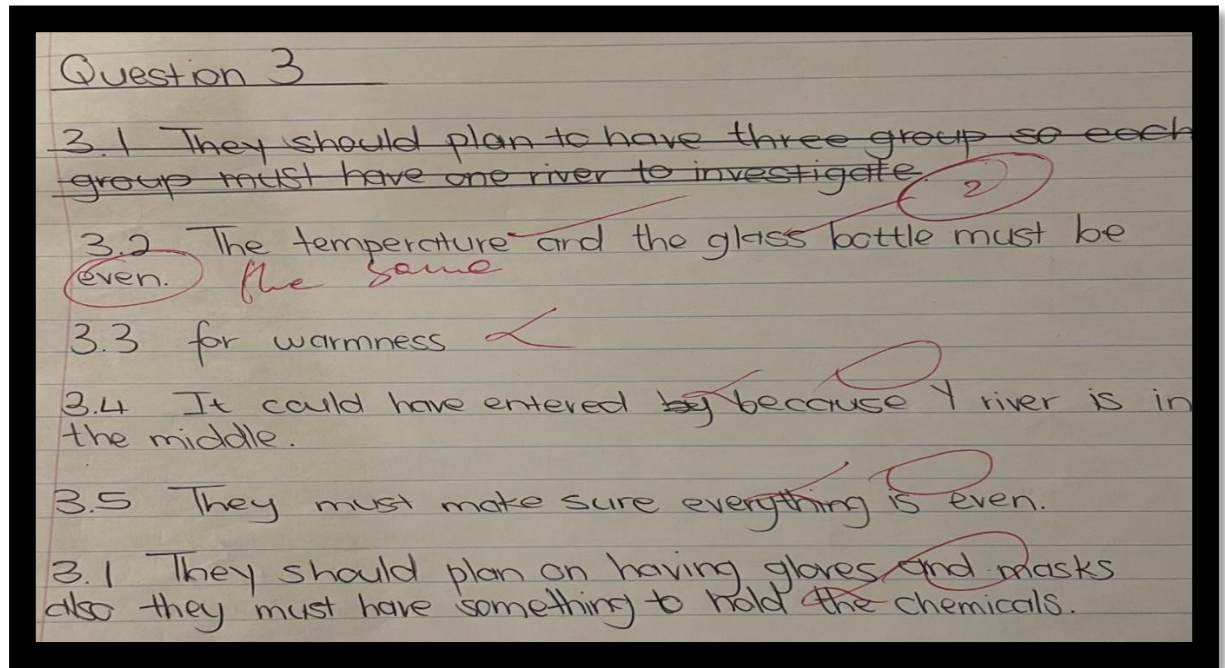 Question 3
3.1 They should plan to have three group so each
group must have one river to investigate.
2
3.2 The temperature and the glass bottle must be
even. the same
3.3 for warmness
3.4 It could have entered by because Y river is in
the middle.
3.5 They must make sure everything is even.
3.1 They should plan on having gloves and masks
also they must have something to hold the chemicals.